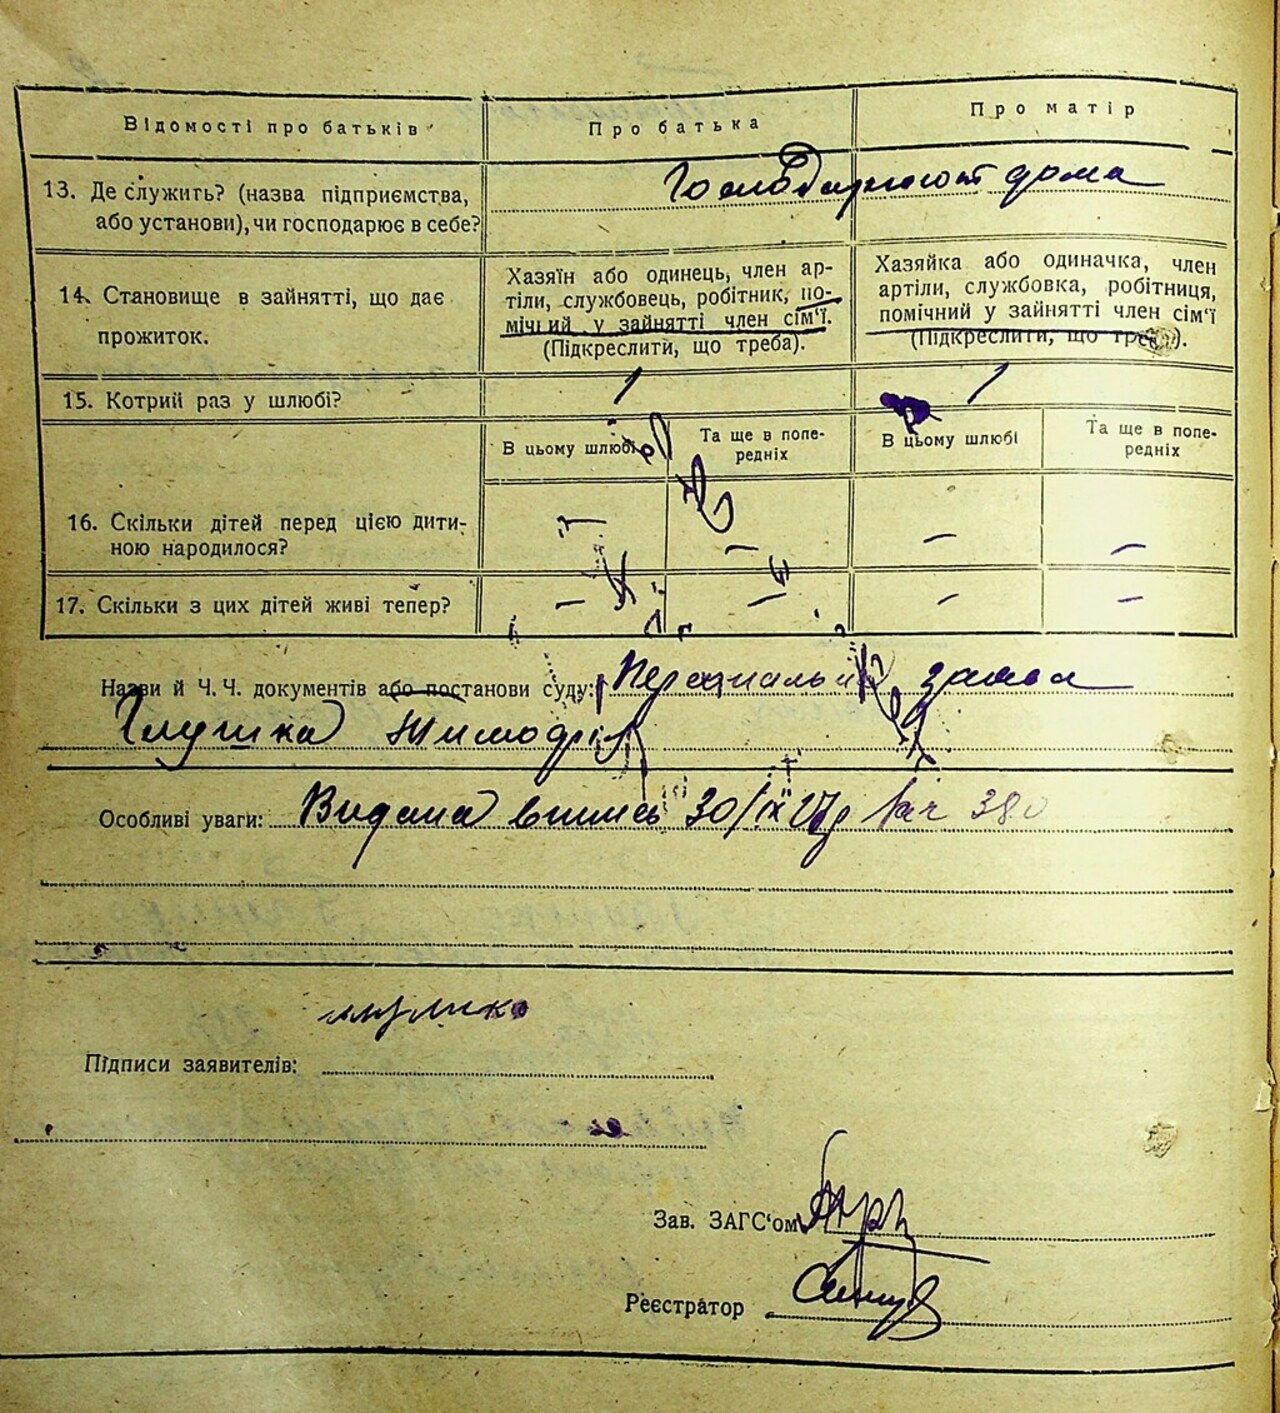 Відомості про батьків Про батька Про матір
13. Де служить? (назва підприємства, або установи), чи господарює в себе?
Господарюют дома
14. Становище в зайнятті, що дає прожиток.
Хазяїн або одинець, член ар-
тіли, службовець, робітник, по-
мічний у зайнятті член сім‘ї.
(Підкреслити, що треба).
Хазяйка або одиначка, член
артіли, службовка, робітниця,
помічний у зайнятті член сім‘ї
(Підкреслити, що треба).
15. Котрий раз у шлюбі? 1 1
В цьому шлюбі
Та ще в попе-
редніх
В цьому шлюбі
Та ще в попе-
редніх
16. Скільки дітей перед цією дити-
ною народилося? – – –
17. Скільки з цих дітей живі тепер? – – – –
Назви й Ч.Ч. документів або постанови суду: Персональн заява
Глушка Тимофія
Особливі уваги: Видана випись 30/IX 27р 380
Підписи заявителів:
Зав. ЗАГС‘ом
Реєстратор